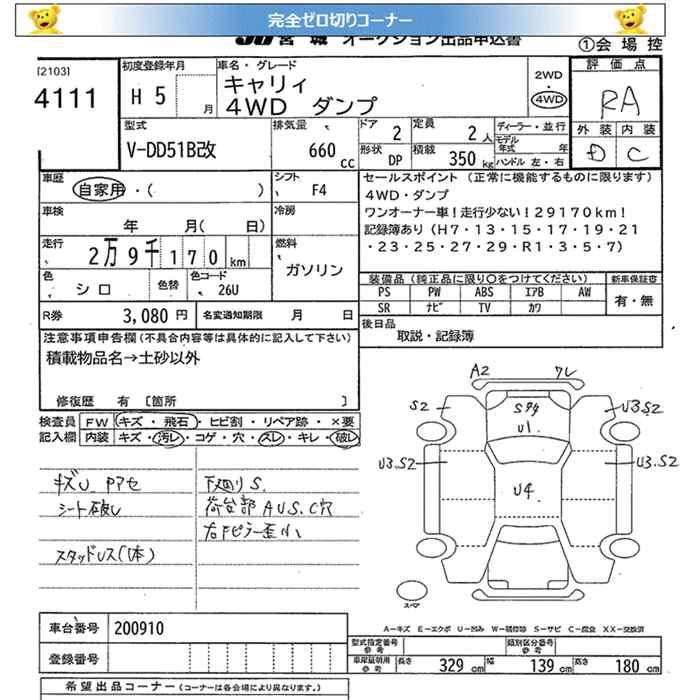 完全ゼロ切りコーナー
JU 宮城 オークション出品申込書
①会場控
[2103]
4111
初度登録年月
H 5 月
車名・グレード
キャリイ
4WD ダンプ
2WD
・
4WD
評価点
RA
外装 内装
D C
型式
V-DD51B改
排気量
660 cc
ドア 2
形状 DP
定員 2人
積載 350 kg
ディーラー・並行
モデル年式 年
ハンドル 左・右
車歴
自家用・( )
シフト F4
車検
年 月( 日)
冷房
走行
2万9千170 km
燃料
ガソリン
色
シロ
色替
色コード
26U
R券 3,080 円
名変通知期限 月 日
セールスポイント (正常に機能するものに限ります)
4WD・ダンプ
ワンオーナー車!走行少ない!29170km!
記録簿あり(H7・13・15・17・19・21
・23・25・27・29・R1・3・5・7)
装備品(純正品に限り〇をつけてください)
新車保証書
PS PW ABS エアB AW
SR ナビ TV カワ
有・無
後日品
取説・記録簿
注意事項申告欄(不具合内容等は具体的に記入して下さい)
積載物品名→土砂以外
修復歴 有 [箇所 ]
検査員記入欄
FW キズ・飛石・ヒビ割・リペア跡・×要
内装 キズ・汚レ・コゲ・穴・スレ・キレ・破レ
キズU Pアセ
シート破レ
スタッドレス(1本)
下廻りS.
荷台部 AUS.C穴
右Fピラー歪小
A2
ワレ
S2
U3S2
Sタタ
U1
U3.S2
U3.S2
U4
スペア
A-キズ E-エクボ U-凹み W-補修跡 S-サビ C-腐食 XX-交換済
車台番号 200910
登録番号
型式指定番号
類別区分番号
車庫証明用参考
長さ 329 cm
幅 139 cm
高さ 180 cm
希望出品コーナー(コーナーは各会場により異なります。)